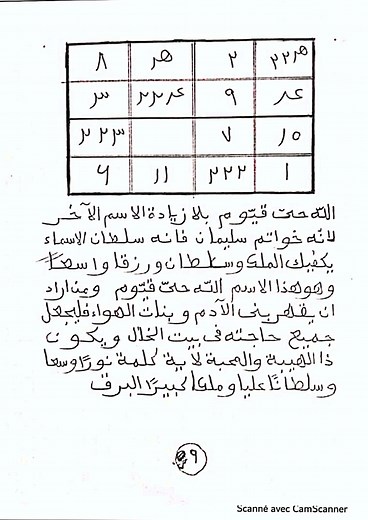 ٨ هر ٢ ٢٢هر
٣ ٢٢٤ ٩ ٤
٢٢٣ ٧ ١٥
٦ ١١ ٢٢٢ ١
الله حىّ قيّوم بلا زيادة الاسم الآخر
لانه خواتم سليمان فانه سلطان الاسماء
يكفيك الملك وسلطان ورزقا واسعا
وهو هذا الاسم الله حىّ قيّوم ومن اراد
ان يقهر بنى الآدم وبنات الهواء فليجعل
جميع حاجته فى بيت الخال ويكون
ذا الهيبة والمحبة لأية كلمة نورًا وسعا
وسلطانًا عليا وملكا كبيرًا البرق
٩
Scanné avec CamScanner